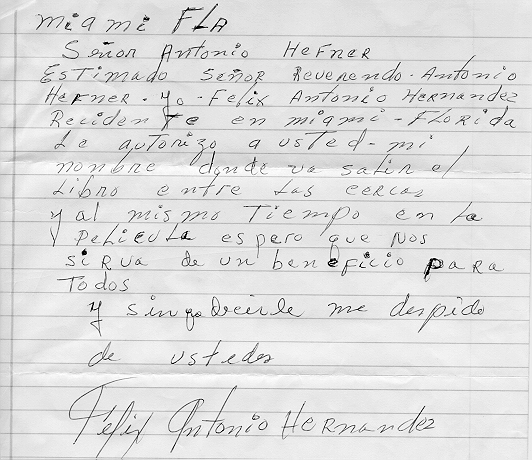 Miami FLA
Señor Antonio Hefner
Estimado Señor Reverendo - Antonio
Hefner - yo - Felix Antonio Hernandez
Recidente en miami - Florida
Le autorizo a usted - mi
nombre donde va salir el
Libro entre las cercas
y al mismo Tiempo en la
Pelicula espero que nos
sirva de un beneficio para
Todos
y sin decirle me despido
de ustedes
Felix Antonio Hernandez